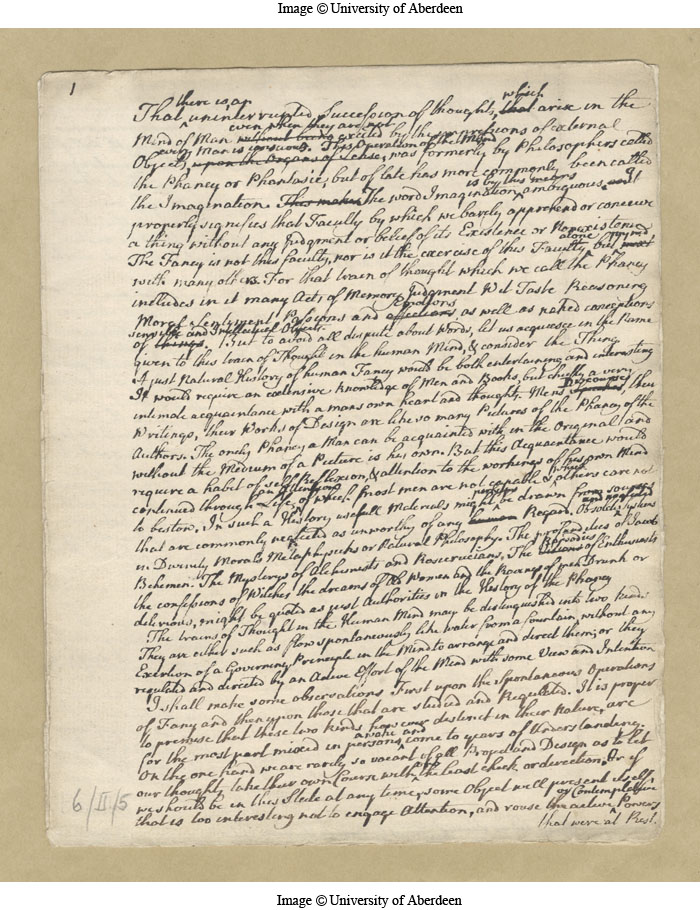 Image © University of Aberdeen
1
there is an which
That uninterrupted Succession of thoughts, that arise in the
even when they are not
Mind of Man without being excited by the impressions of external
every Man is conscious. This Operation of the Mind
Objects upon the Organs of Sense, was formerly by Philosophers called
the Phancy or Phantasie, but of late has more commonly been called
is by this means
the Imagination. This makes The word Imagination ambiguous, and It
properly signifies that Faculty by which we barely apprehend or conceive
a thing without any Judgment or belief of its Existence or Nonexistence
alone
The Fancy is not this faculty, nor is it the exercise of this Faculty but
with many others. For that train of thought which we call the Phancy
includes in it many Acts of Memory Judgment Wit Taste Reasoning
Emotions
Moral Sentiment Passions and affections as well as naked conceptions
sensible and Intellectual Objects.
of things. But to avoid all dispute about Words, let us acquiesce in the Name
given to this train of Thought in the human Mind, & consider the Thing
A just Natural History of human Fancy would be both entertaining and interesting
It would require an extensive knowledge of Men and Books, but chiefly a very
Discourses
intimate acquaintance with a mans own heart and thoughts. Mens Speeches, their
Writings, their Works of Design are like so many Pictures of the Phancy of the
Authors. The onely Phancy a Man can be acquainted with in the Original and
without the Medium of a Picture is his own. But this Acquaintance would
require a habit of self Reflexion, & attention to the workings of his own Mind
an Attention which
continued through Life, of which most men are not capable & others care not
to bestow. In such a History usefull Materials might be drawn from sources
and neglected
that are commonly neglected as unworthy of any Regard. Obsolete Systems
in Divinity Morals Metaphysicks or Natural Philosophy. The prophecies of Jacob
Rhapsodies
Behemen. The Mysterys of Alchemists and Rosecrucians, The Visions of Enthusiasts
the confessions of Witches the dreams of Old Women and the Reveries of men Drunk or
delirious, might be quoted as just Authorities in the History of the Phancy
The trains of Thought in the Human Mind may be distinguished into two kinds
They are either such as flow spontaneously like water from a fountain, without any
Exertion of a Governing Principle in the Mind to arrange and direct them; or they
regulated and directed by an Active Effort of the Mind with some View and Intention
I shall make some observations First upon the Spontaneous Operations
of Fancy and then upon those that are studied and Regulated. It is proper
to premise that these two kinds however distinct in their Nature, are
awake and
for the most part mixed in persons come to years of Understanding.
On the one hand we are rarely so vacant of all Project and Design as to let
our thoughts take their own Course without the least check or direction, Or if
we should be in this State at any time, some Object will present itself
or Contemplative
that is too interesting not to engage Attention, and rouse the active Powers
that were at Rest.
6/II/5
Image © University of Aberdeen